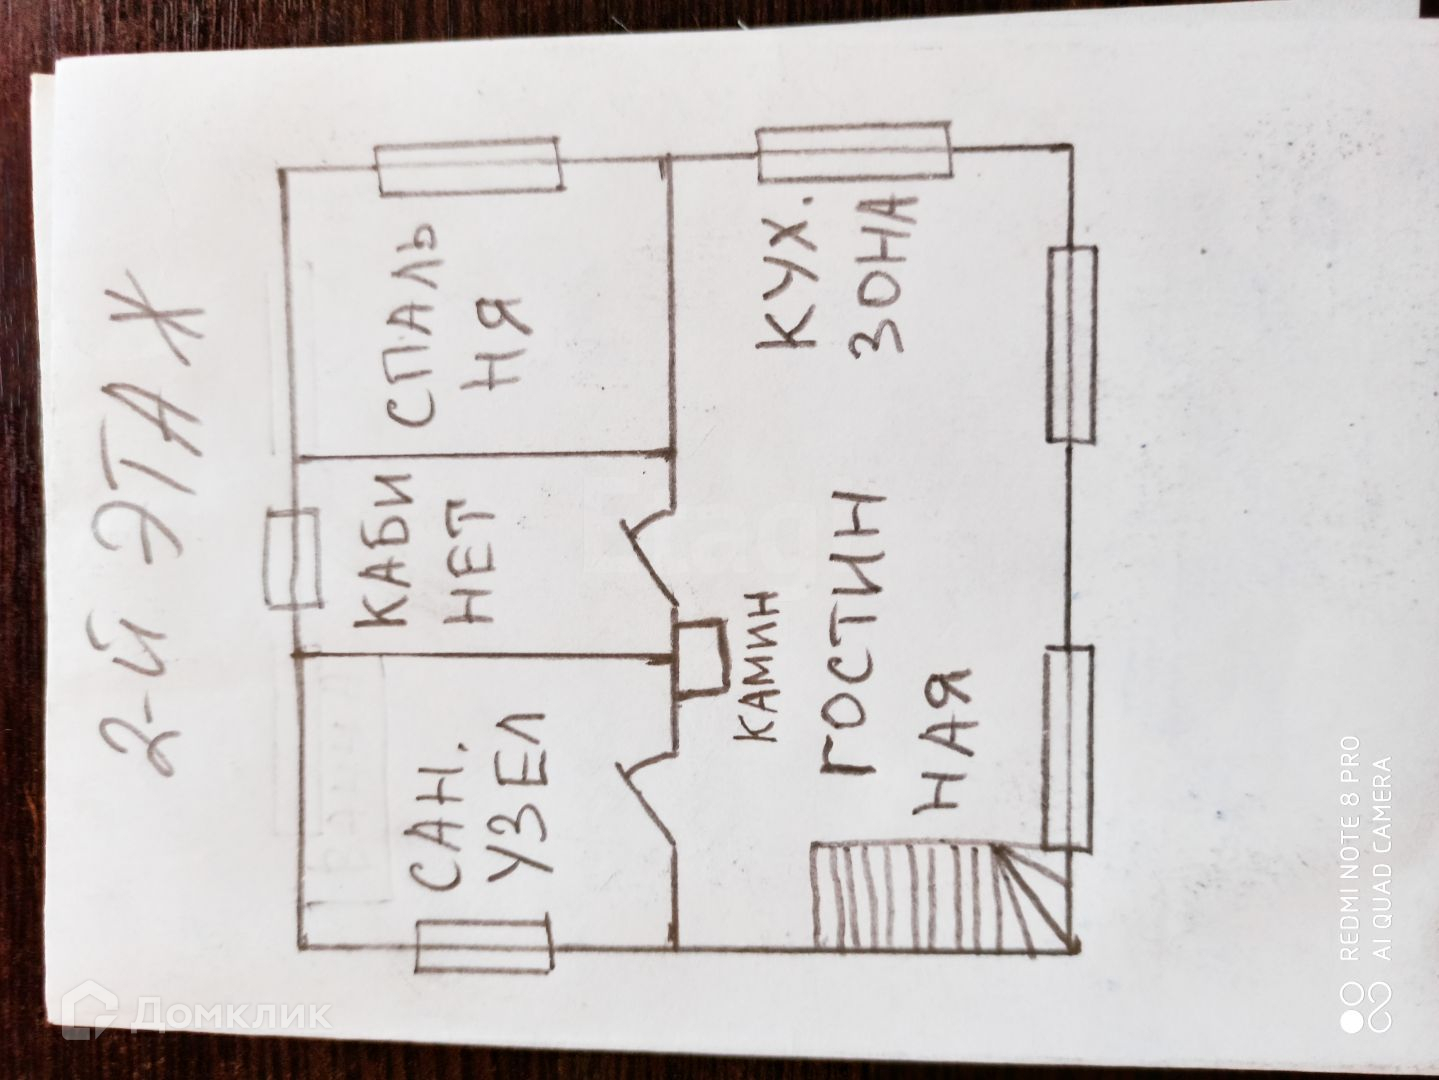 2-Й ЭТАЖ
САН.
УЗЕЛ
КАБИ
НЕТ
СПАЛЬ
НЯ
КАМИН
ГОСТИН
НАЯ
КУХ.
ЗОНА
Домклик
Etagi
REDMI NOTE 8 PRO
AI QUAD CAMERA